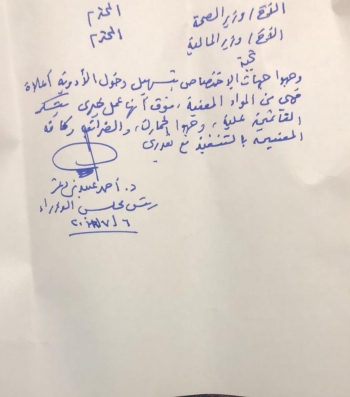 الأخ / وزير الصحة المحترم
الأخ / وزير المالية المحترم
تحية
وجهوا جهات الإختصاص بتسهيل دخول الأدوية أعلاه
فهي من المواد المعفية، فوق أنها عمل خيري يشكر
القائمين عليه، وجهوا الجمارك، والضرائب وكافة
المعنيين بالتنفيذ مع تقديري
د. أحمد عبيد بن دغر
رئيس مجلس الوزراء